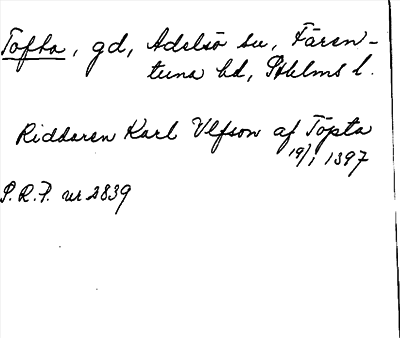 Tofta, gd, Adelsö sn, Fären-
tuna hd, Sthlms l.
Riddaren Karl Ulfson af Töpta
19/1 1397
P.R.P. nr 2839